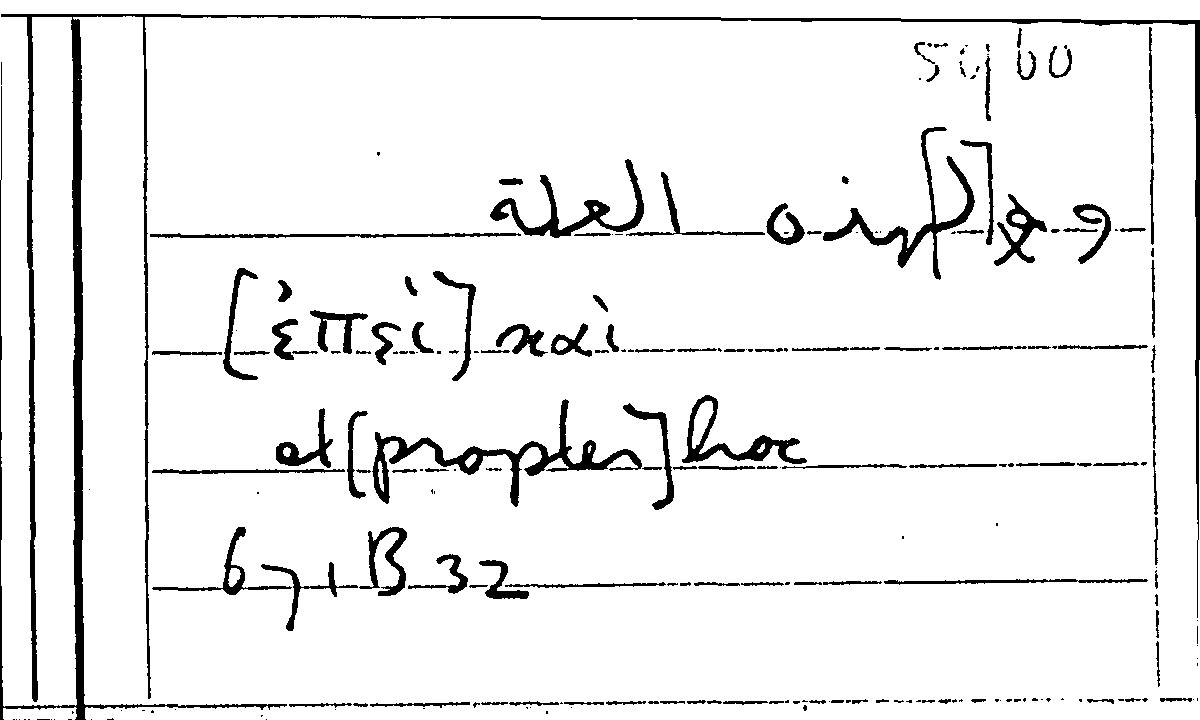 5960
و[ل]هذه العلة
[ἐπεὶ] καὶ
et [propter] hoc
671 B 32